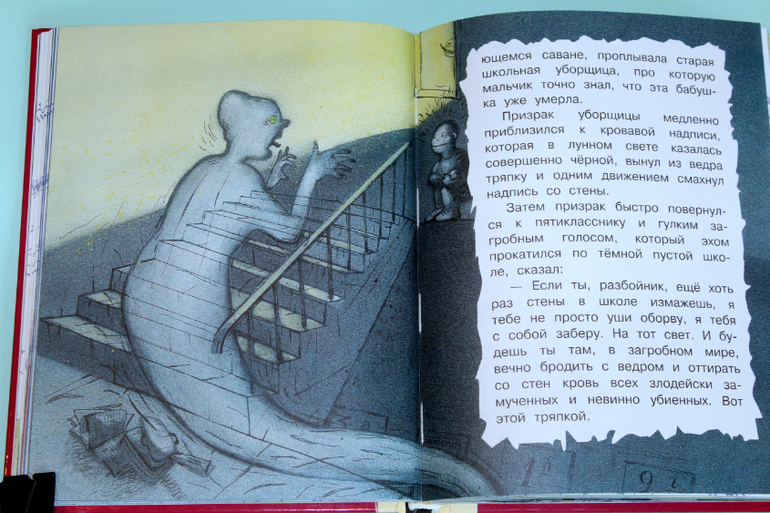 ющемся саване, проплывала старая
школьная уборщица, про которую
мальчик точно знал, что эта бабуш-
ка уже умерла.
Призрак уборщицы медленно
приблизился к кровавой надписи,
которая в лунном свете казалась
совершенно чёрной, вынул из ведра
тряпку и одним движением смахнул
надпись со стены.
Затем призрак быстро повернул-
ся к пятикласснику и гулким за-
гробным голосом, который эхом
прокатился по тёмной пустой шко-
ле, сказал:
— Если ты, разбойник, ещё хоть
раз стены в школе измажешь, я
тебе не просто уши оборву, я тебя
с собой заберу. На тот свет. И бу-
дешь ты там, в загробном мире,
вечно бродить с ведром и оттирать
со стен кровь всех злодейски за-
мученных и невинно убиенных. Вот
этой тряпкой.